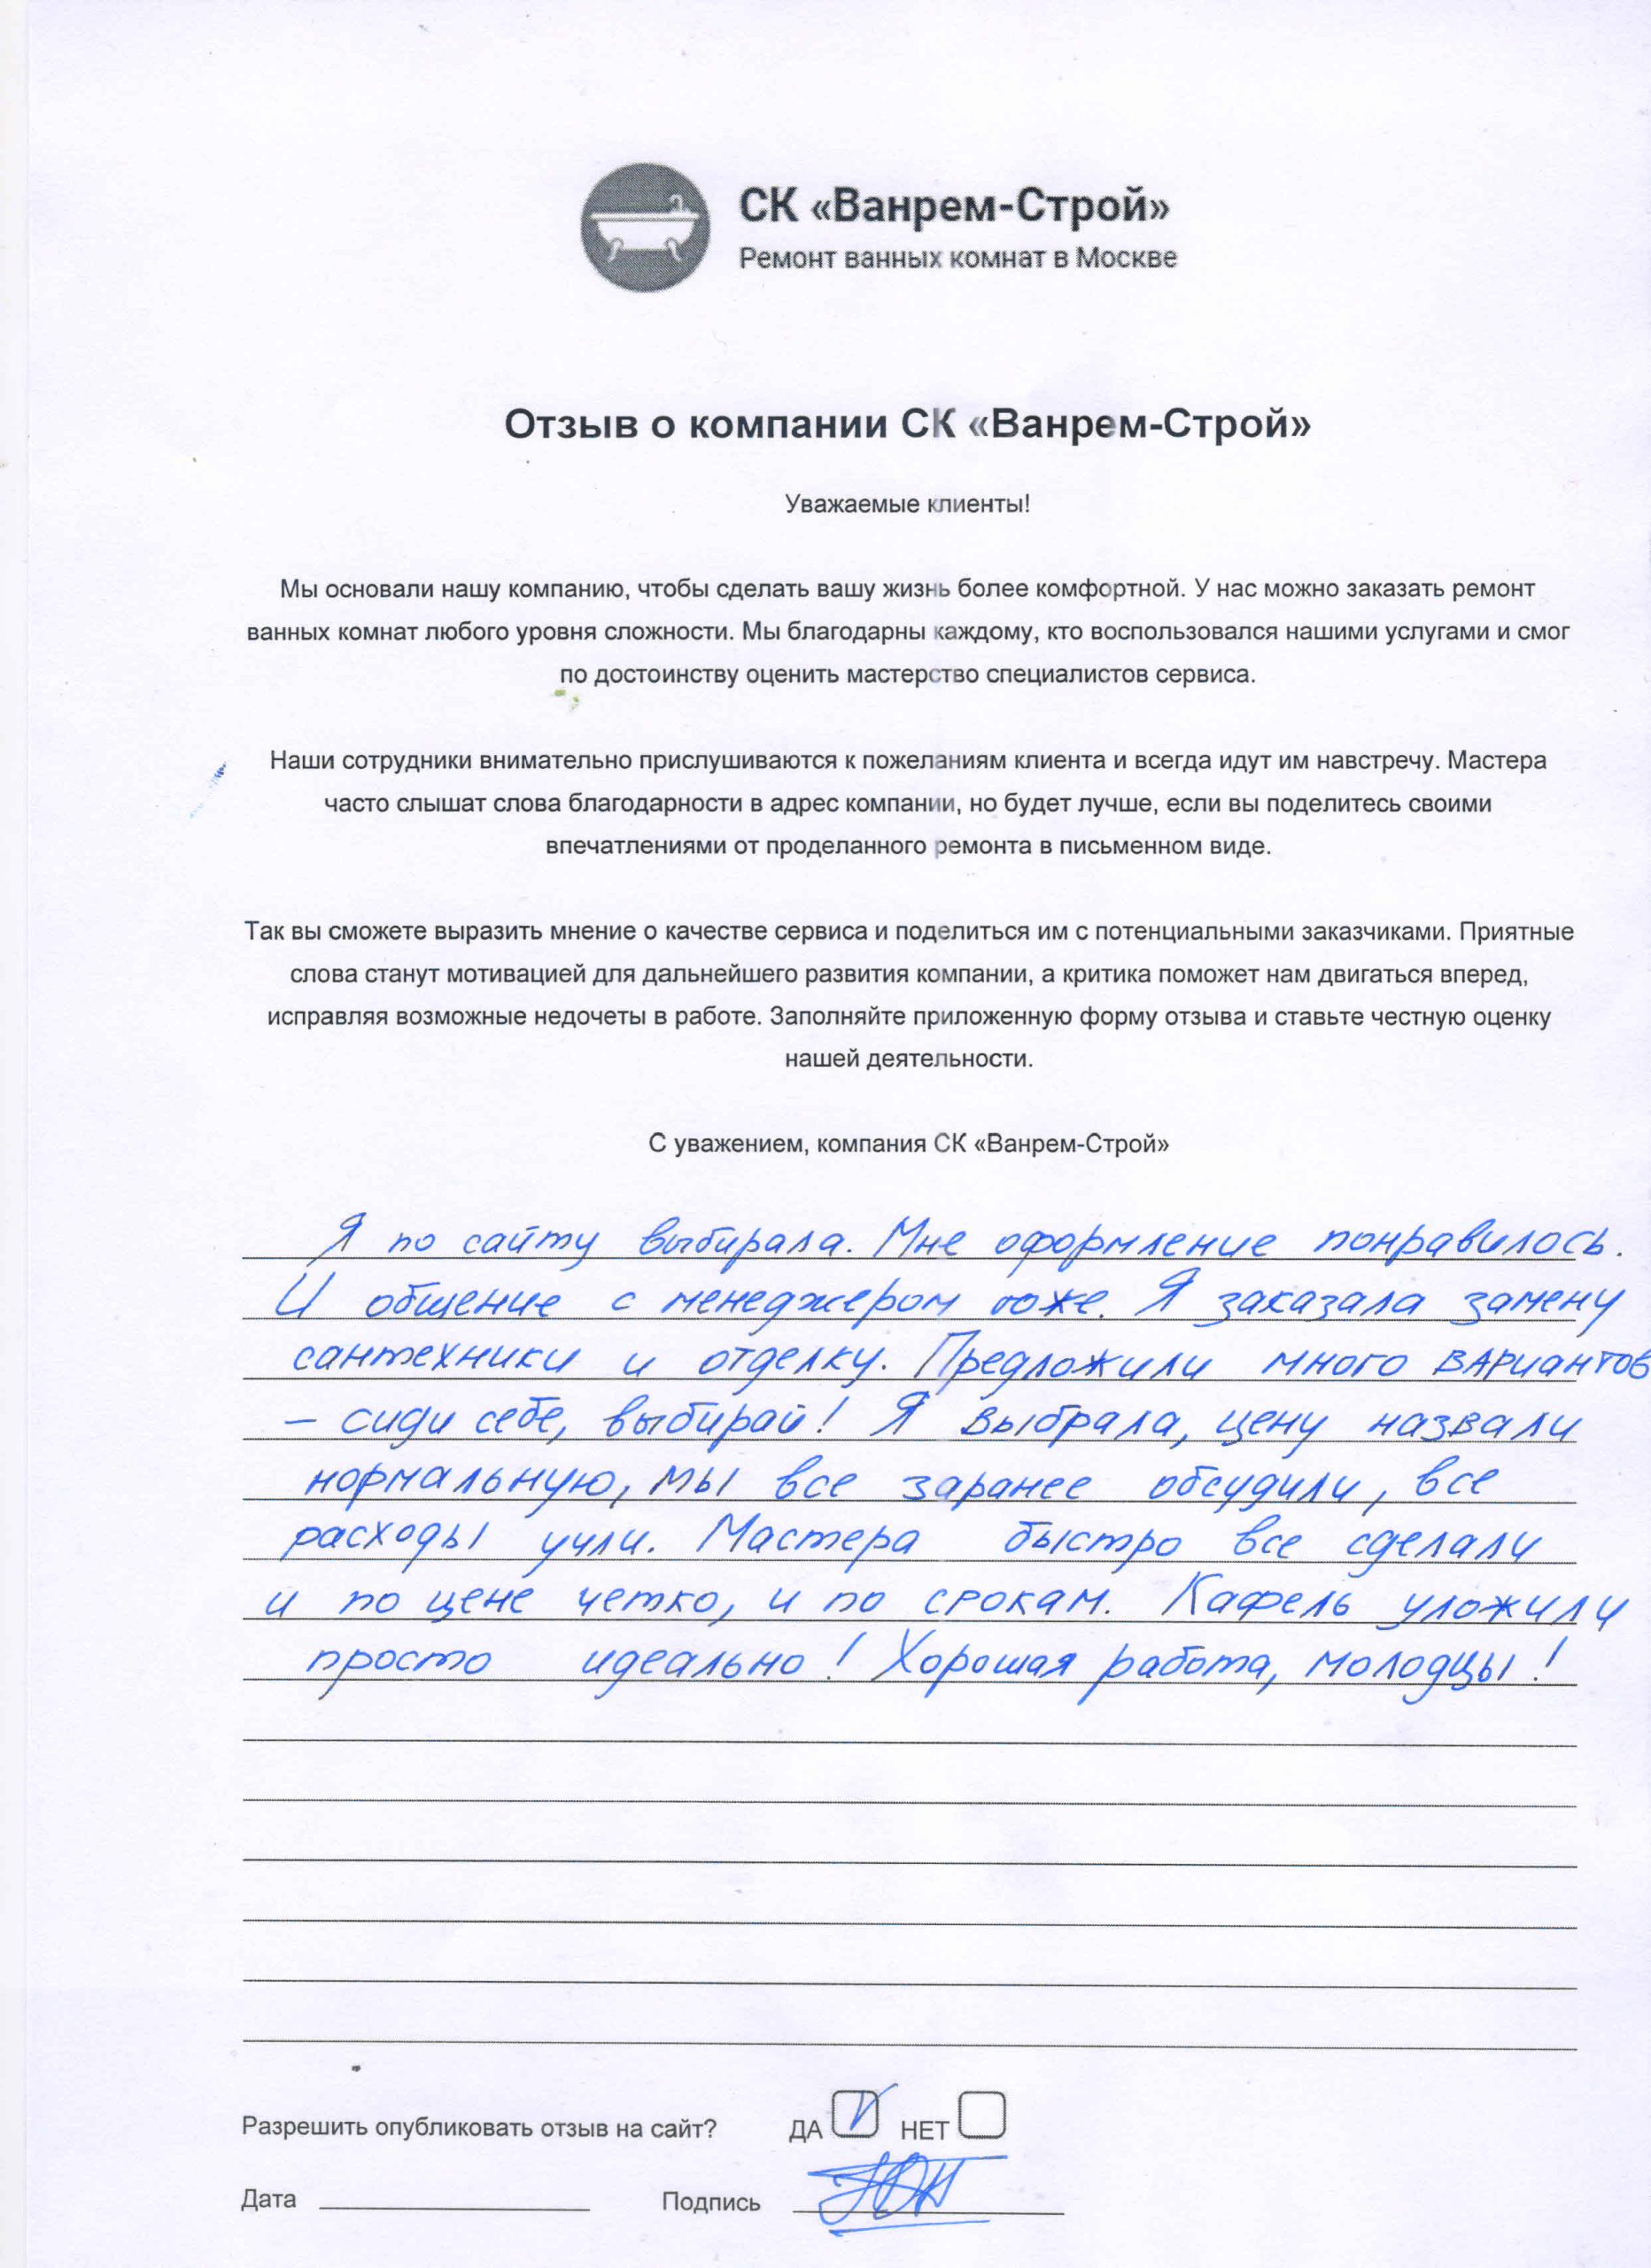 СК «Ванрем-Строй»
Ремонт ванных комнат в Москве
Отзыв о компании СК «Ванрем-Строй»
Уважаемые клиенты!
Мы основали нашу компанию, чтобы сделать вашу жизнь более комфортной. У нас можно заказать ремонт
ванных комнат любого уровня сложности. Мы благодарны каждому, кто воспользовался нашими услугами и смог
по достоинству оценить мастерство специалистов сервиса.
Наши сотрудники внимательно прислушиваются к пожеланиям клиента и всегда идут им навстречу. Мастера
часто слышат слова благодарности в адрес компании, но будет лучше, если вы поделитесь своими
впечатлениями от проделанного ремонта в письменном виде.
Так вы сможете выразить мнение о качестве сервиса и поделиться им с потенциальными заказчиками. Приятные
слова станут мотивацией для дальнейшего развития компании, а критика поможет нам двигаться вперед,
исправляя возможные недочеты в работе. Заполняйте приложенную форму отзыва и ставьте честную оценку
нашей деятельности.
С уважением, компания СК «Ванрем-Строй»
Я по сайту выбирала. Мне оформление понравилось.
И общение с менеджером тоже. Я заказала замену
сантехники и отделку. Предложили много вариантов
– сиди себе, выбирай! Я выбрала, цену назвали
нормальную, мы все заранее обсудили, все
расходы учли. Мастера быстро все сделали
и по цене четко, и по срокам. Кафель уложили
просто идеально! Хорошая работа, молодцы!
Разрешить опубликовать отзыв на сайт? ДА V НЕТ
Дата Подпись